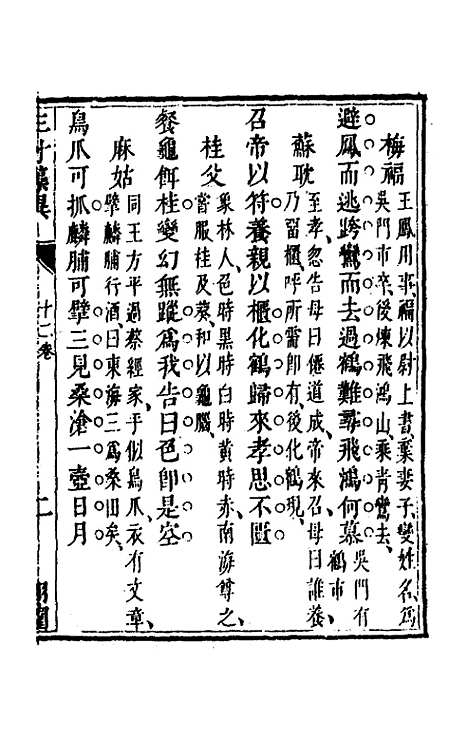 梅福
王鳳用事福以尉上書棄妻子變姓名爲
吳門市卒後煉飛鴻山乘青鸞去
避鳳而逃跨鸞而去過鶴難尋飛鴻何慕
吳門有
鶴市
蘇耽
至孝忽告母曰僊道成帝來召母曰誰養
乃留櫃呼所需卽有後化鶴現
召帝以符養親以櫃化鶴歸來孝思不匱
桂父
象林人色時黑時白時黃時赤南海尊之
嘗服桂及葵和以龜腦
餐龜餌桂變幻無蹤爲我告曰色卽是空
麻姑
同王方平過蔡經家手似鳥爪衣有文章
擘麟脯行酒曰東海三爲桑田矣
鳥爪可抓麟脯可擘三見桑滄一壺日月
十二卷
二